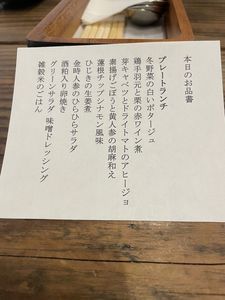 本日のお品書
プレートランチ
冬野菜の白いポタージュ
鶏手羽元と栗の赤ワイン煮
芽キャベツとドライトマトのアヒージョ
素揚げごぼうと黄人参の胡麻和え
蓮根チップシナモン風味
ひじきの生姜煮
金時人参のひらひらサラダ
酒粕入り卵焼き
グリーンサラダ 味噌ドレッシング
雑穀米のごはん